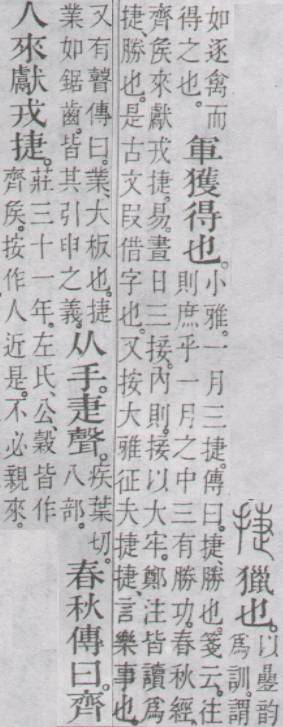 捷 獵也。
以疊韵
爲訓。謂
如逐禽而
得之也。
軍獲得也。
小雅。一月三捷。傳曰。捷、勝也。箋云。往
則庶乎一月之中三有勝功。春秋經、
齊矦來獻戎捷。易。晝日三接。內則。接以大牢。鄭注皆讀爲
捷、勝也。是古文叚借字也。又按大雅征夫捷捷、言樂事也。
又有瞽傳曰。業、大板也。捷
業如鋸齒。皆其引申之義。
从手。疌聲。
疾葉切。
八部。
春秋傳曰。齊
人來獻戎捷。
莊三十一年。左氏、公榖皆作
齊矦。按作人近是。不必親來。